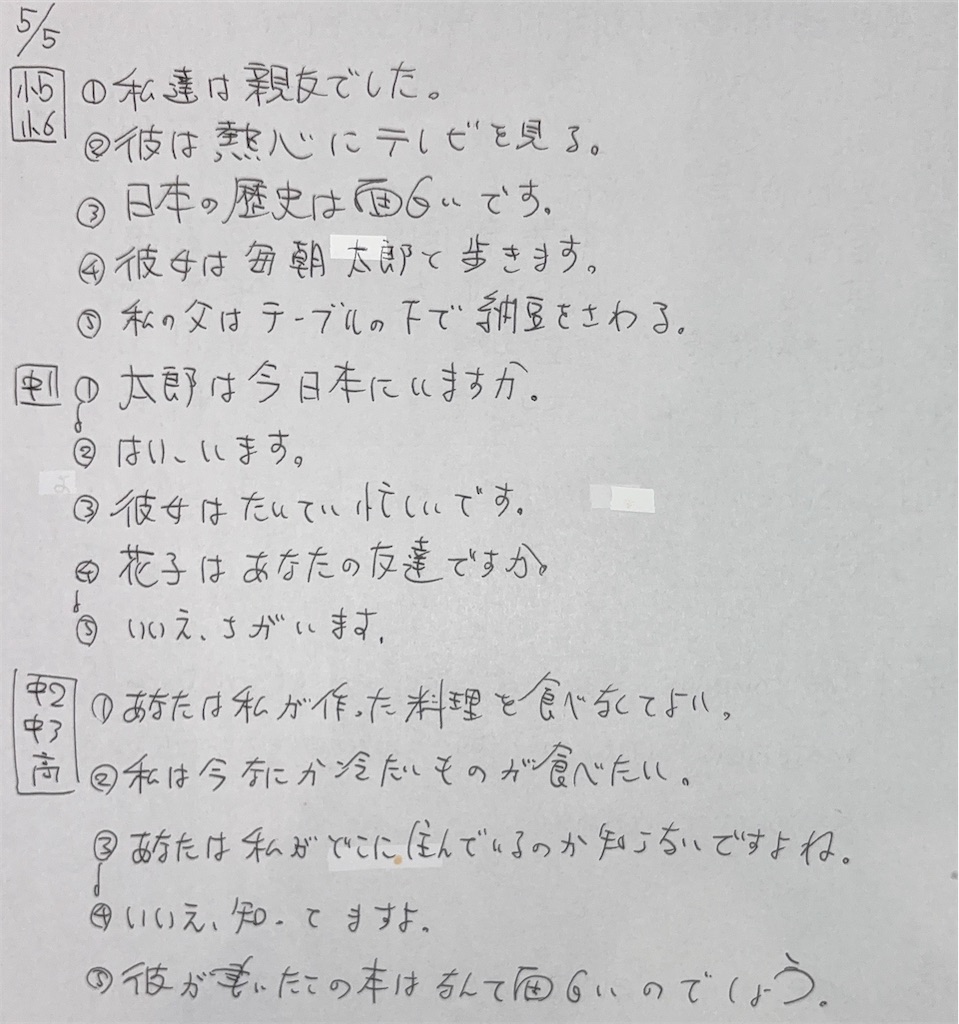 5/5
小5 ① 私達は親友でした。
小6
② 彼は熱心にテレビを見る。
③ 日本の歴史は面白いです。
④ 彼女は毎朝太郎と歩きます。
⑤ 私の父はテーブルの下で納豆をさわる。
中1 ① 太郎は今日本にいますか。
② はい、います。
③ 彼女はたいてい忙しいです。
④ 花子はあなたの友達ですか。
⑤ いいえ、ちがいます。
中2 ① あなたは私が作った料理を食べなくてよい。
中3
高 ② 私は今なにか冷たいものが食べたい。
③ あなたは私がどこに住んでいるのか知らないですよね。
④ いいえ、知ってますよ。
⑤ 彼が書いたこの本はなんて面白いのでしょう。